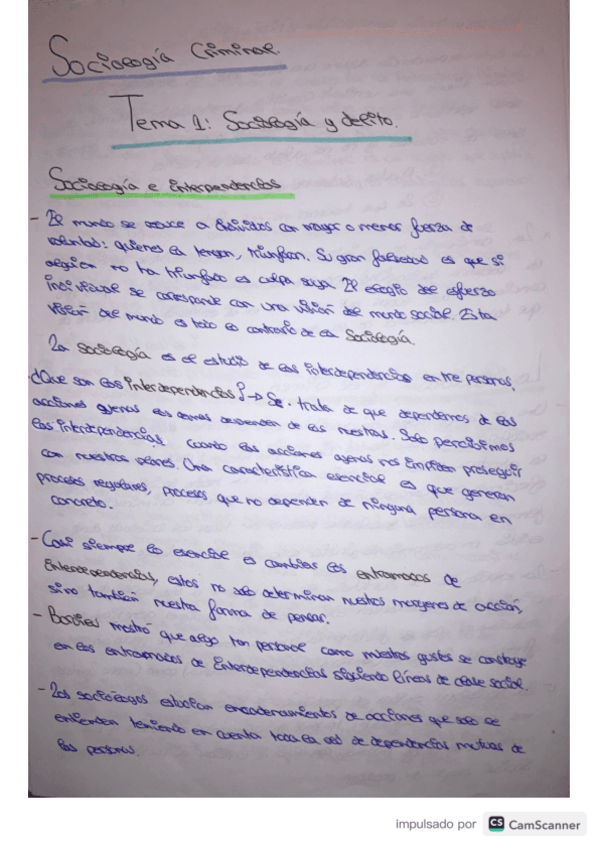 Sociología Criminal.
Tema 1: Sociología y delito.
Sociología e interpendencias
- El mundo se reduce a individuos con mayor o menor fuerza de
voluntad: quienes la tengan, triunfan. Su gran falsedad es que si
alguien no ha triunfado es culpa suya. El elogio del esfuerzo
individual se corresponde con una visión del mundo social. Esta
visión del mundo es todo lo contrario de la Sociología.
La sociología es el estudio de las interdependencias entre personas.
¿Que son las interdependencias? → Se trata de que dependemos de las
acciones ajenas las demas dependen de las nuestras. Solo percibimos
las interdependencias cuando las acciones ajenas nos impiden proseguir
con nuestros planes. Una característica esencial es que generan
procesos regulares, procesos que no dependen de ninguna persona en
concreto.
- Casi siempre lo esencial es cambiar los entramados de
interdependencias, estos no solo determinan nuestros margenes de acción,
sino también nuestra forma de pensar.
- mostró que algo tan personal como nuestros gustos se construye
en los entramados de interdependencias siguiendo líneas de clase social.
- Los sociólogos estudian encadenamientos de acciones que solo se
entienden teniendo en cuenta toda la red de dependencias mutuas de
las personas.
impulsado por CS CamScanner